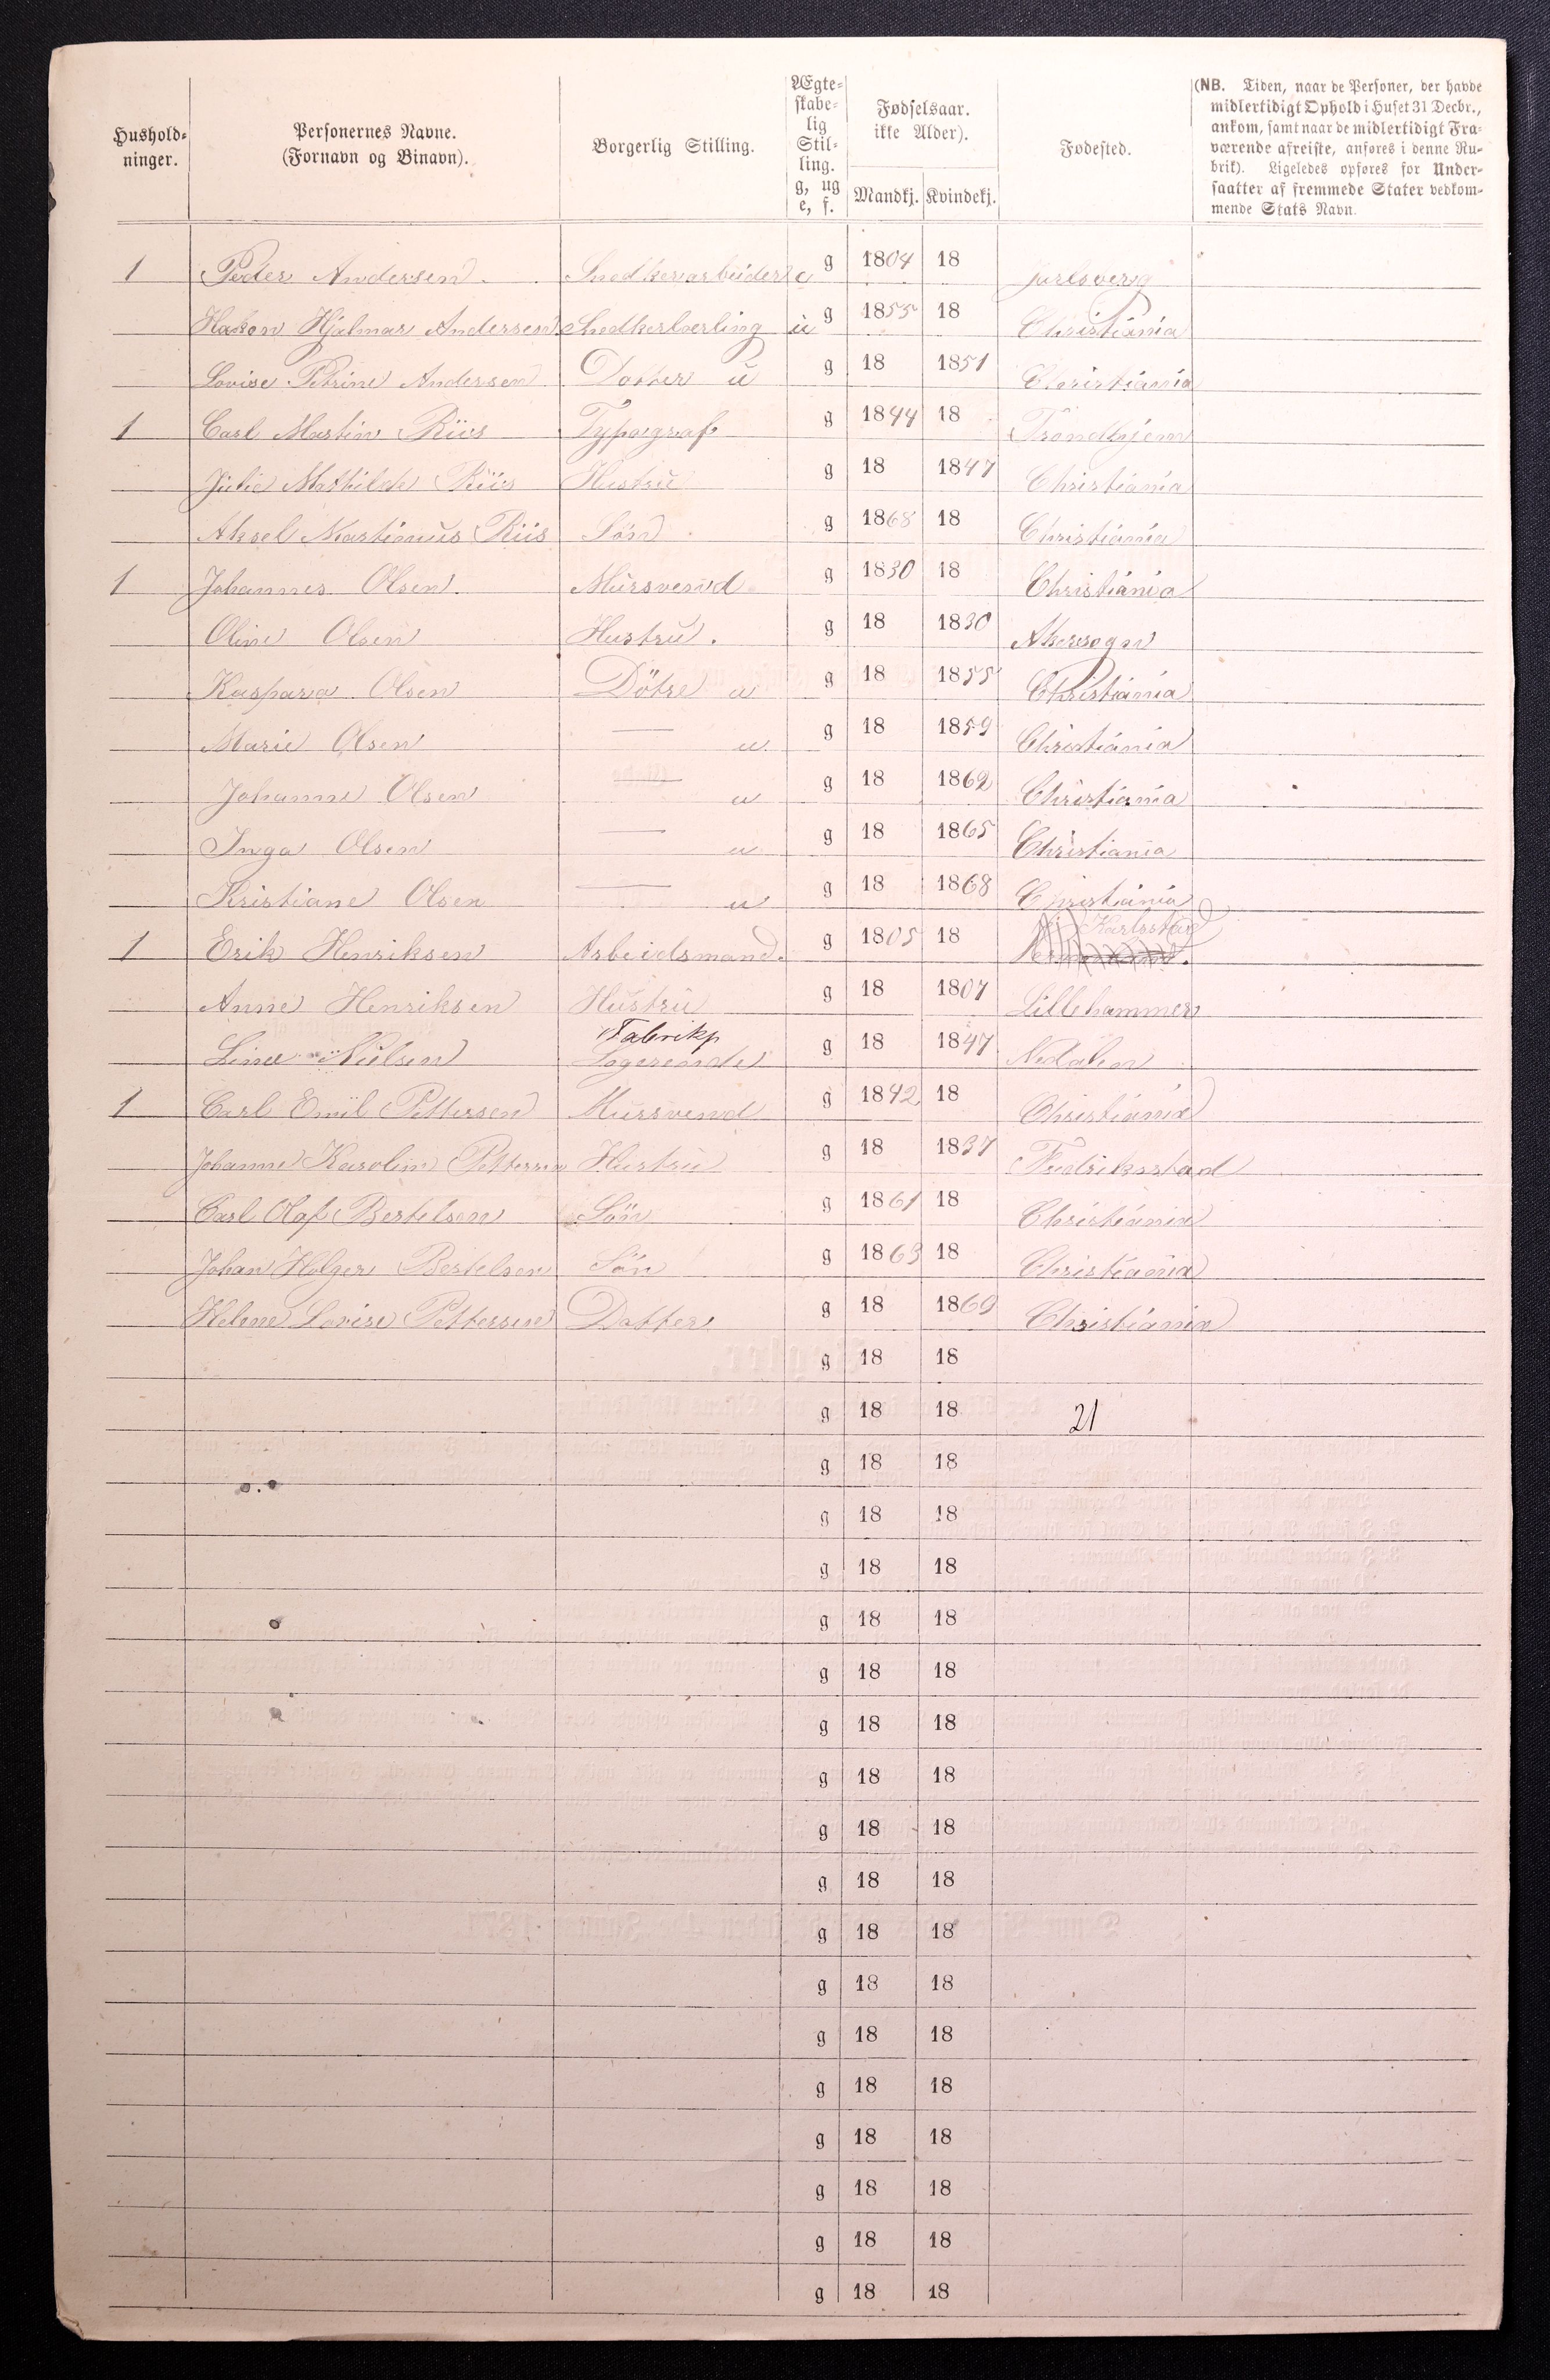 Hushold-
ninger.
Personernes Navne.
(Fornavn og Binavn).
Borgerlig Stilling.
Ægte-
skabe-
lig
Stil-
ling.
g, ug
e, f.
Fødselsaar.
ikke Alder).
Mandkj. Kvindekj.
Fødested.
(NB. Tiden, naar de Personer, der havde
midlertidigt Ophold i Huset 31 Decbr.,
ankom, samt naar de midlertidigt Fra-
værende afreiste, anføres i denne Ru-
brik). Ligeledes opføres for Under-
saatter af fremmede Stater vedkom-
mende Stats Navn.
1 Peder Andersen Snedkerarbeider e g 1804 18 Jarlsberg
Hakon Hjalmar Andersen Snedkerlærling u g 1855 18 Christiania
Lovise Petrine Andersen Datter u g 18 1851 Christiania
1 Carl Martin Riis Typograf g 1844 18 Trondhjem
Julie Mathilde Riis Hustru g 18 1847 Christiania
Aksel Martinius Riis Søn g 1868 18 Christiania
1 Johannes Olsen Mursvend g 1830 18 Christiania
Oline Olsen Hustru. g 18 1830 Akersogn
Kaspara Olsen Dötre u g 18 1855 Christiania
Marie Olsen — u g 18 1859 Christiania
Johanne Olsen — u g 18 1862 Christiania
Inga Olsen — u g 18 1865 Christiania
Kristiane Olsen — u g 18 1868 Christiania
1 Erik Henriksen Arbeidsmand. g 1805 18 Karlstad
Anne Henriksen Hustru g 18 1807 Lillehammer
Fabrikp
Line Nielsen Logerende g 18 1847
1 Carl Emil Pettersen Mursvend g 1842 18 Christiania
Johanne Karoline Pettersen Hustru g 18 1837 Fredriksstad
Carl Olaf Bertelsen Sön g 1861 18 Christiania
Johan Holger Bertelsen Sön g 1863 18 Christiania
Helene Lovise Pettersen Datter g 18 1869 Christiania
g 18 18
g 18 18 21
g 18 18
g 18 18
g 18 18
g 18 18
g 18 18
g 18 18
g 18 18
g 18 18
g 18 18
g 18 18
g 18 18
g 18 18
g 18 18
g 18 18
g 18 18
g 18 18
g 18 18